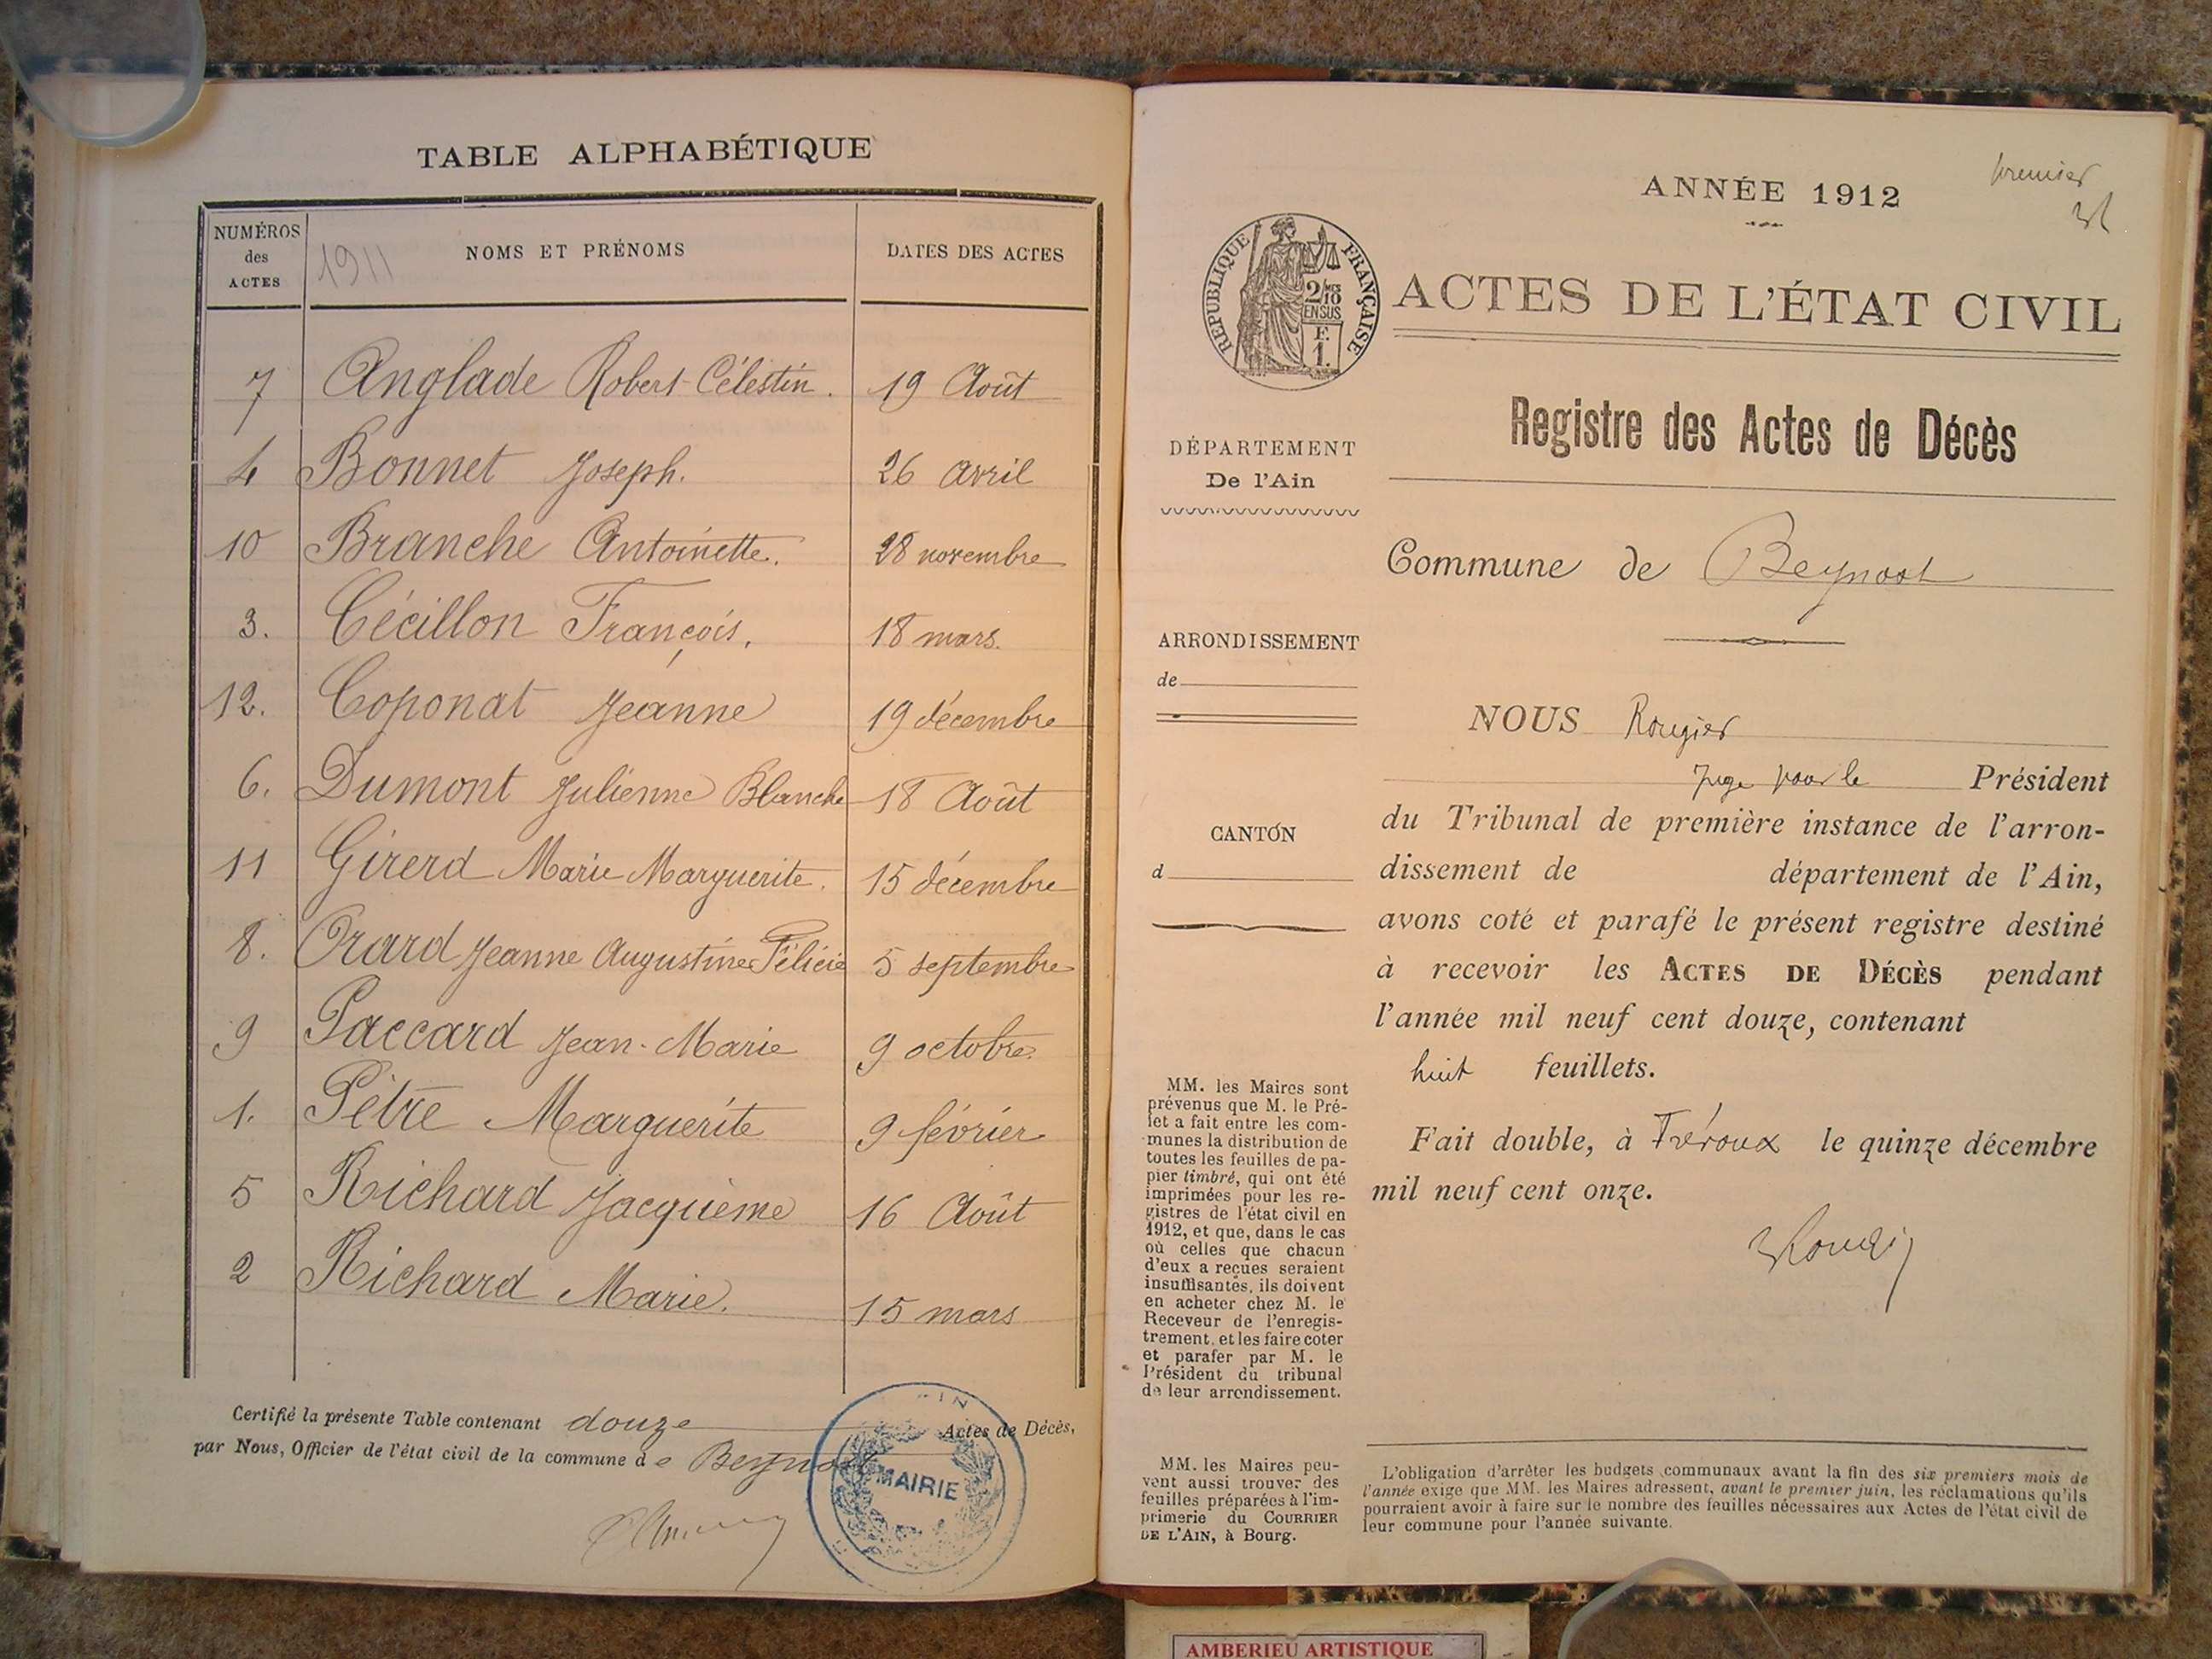 TABLE ALPHABÉTIQUE
NUMÉROS
des
ACTES
1911
NOMS ET PRÉNOMS
DATES DES ACTES
7 Anglade Robert Célestin. 19 Août
4 Bonnet Joseph. 26 avril
10 Branche Antoinette. 28 novembre
3. Cécillon François. 18 mars.
12. Coponat Jeanne 19 décembre
6. Dumont Julienne Blanche 18 Août
11 Girerd Marie Marguerite. 15 décembre
8. Orard Jeanne Augustine Félicie 5 septembre
9 Paccard Jean-Marie 9 octobre.
1. Pètre Marguerite 9 février
5 Richard Jacquème 16 Août
2 Richard Marie. 15 mars
Certifié la présente Table contenant douze Actes de Décès,
par Nous, Officier de l'état civil de la commune de Beynost
MAIRIE
premier
ANNÉE 1912
RÉPUBLIQUE FRANÇAISE
2/10
EN SUS
F.
1.
ACTES DE L'ÉTAT CIVIL
Registre des Actes de Décès
DÉPARTEMENT
De l'Ain
Commune de Beynost
ARRONDISSEMENT
de
CANTON
d
NOUS Rougier
Juge pour le Président
du Tribunal de première instance de l'arron-
dissement de département de l'Ain,
avons coté et parafé le présent registre destiné
à recevoir les ACTES DE DÉCÈS pendant
l'année mil neuf cent douze, contenant
huit feuillets.
Fait double, à Trévoux le quinze décembre
mil neuf cent onze.
Rougier
MM. les Maires sont
prévenus que M. le Pré-
fet a fait entre les com-
munes la distribution de
toutes les feuilles de pa-
pier timbré, qui ont été
imprimées pour les re-
gistres de l'état civil en
1912, et que, dans le cas
où celles que chacun
d'eux a reçues seraient
insuffisantes, ils doivent
en acheter chez M. le
Receveur de l'enregis-
trement, et les faire coter
et parafer par M. le
Président du tribunal
de leur arrondissement.
MM. les Maires peu-
vent aussi trouver des
feuilles préparées à l'im-
primerie du COURRIER
DE L'AIN, à Bourg.
L'obligation d'arrêter les budgets communaux avant la fin des six premiers mois de
l'année exige que MM. les Maires adressent, avant le premier juin, les réclamations qu'ils
pourraient avoir à faire sur le nombre des feuilles nécessaires aux Actes de l'état civil de
leur commune pour l'année suivante.
AMBERIEU ARTISTIQUE